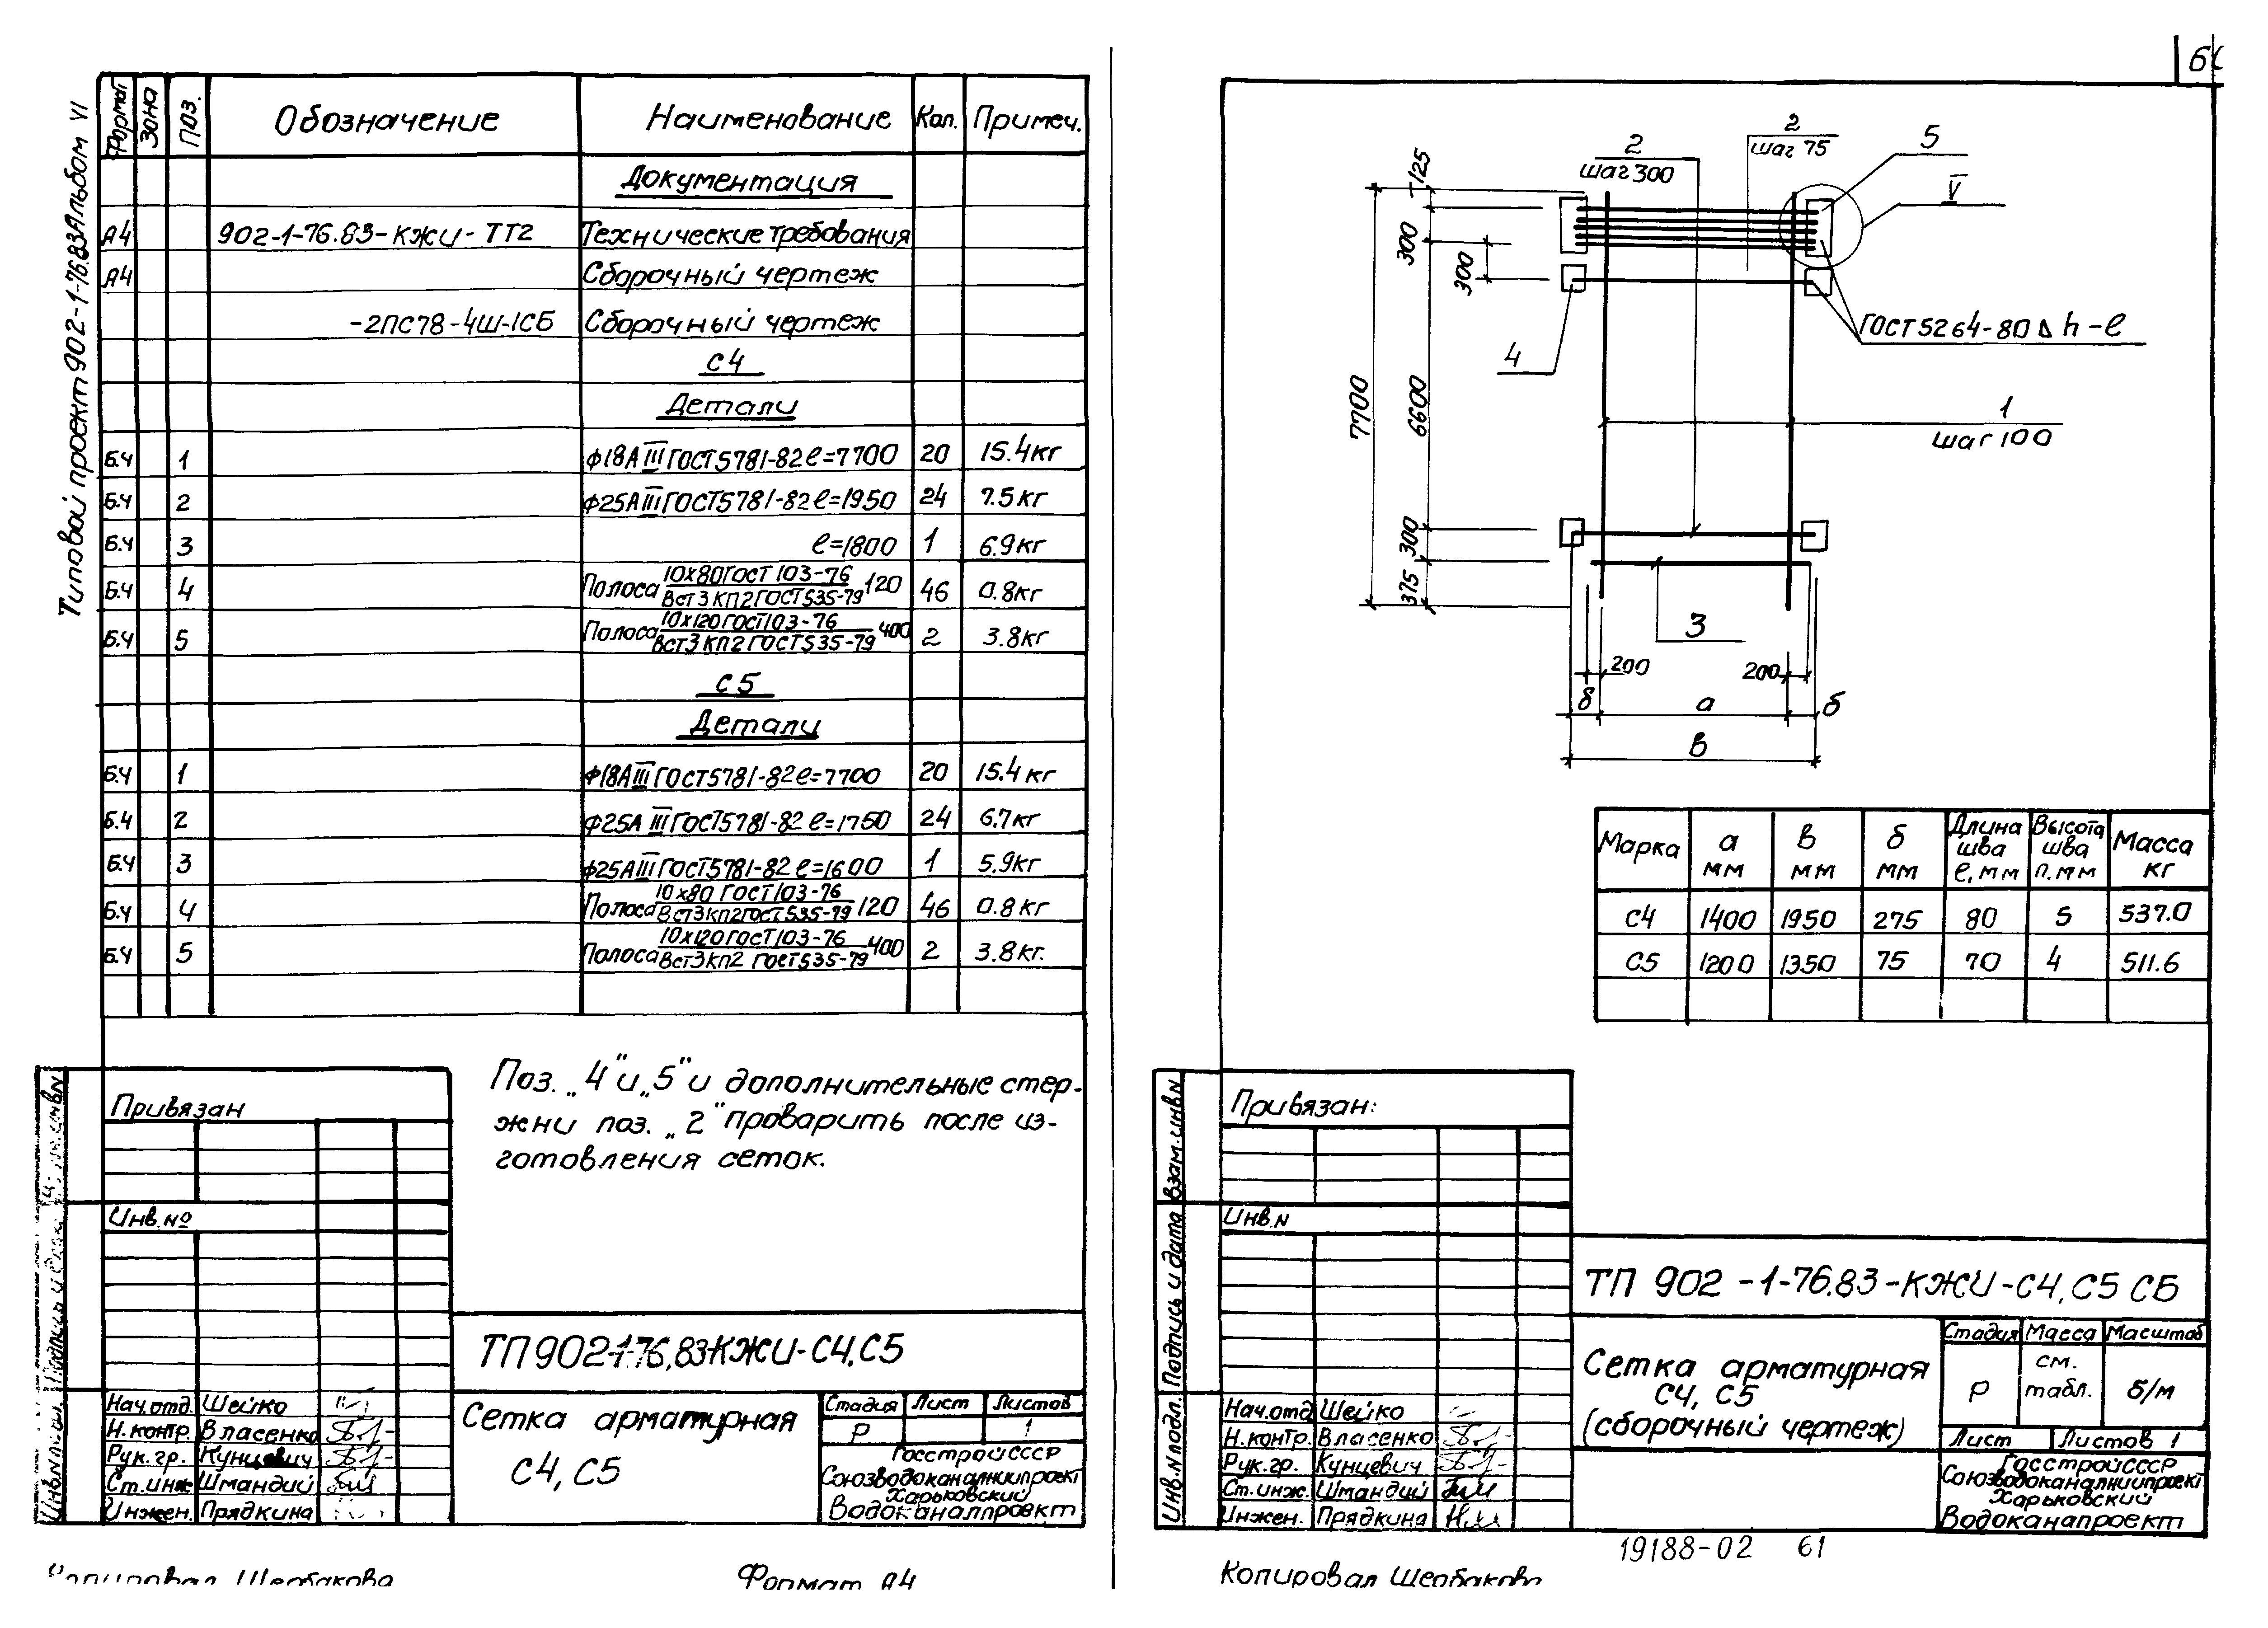 Типовой проект 902-1-76.83 Альбом VI
Формат Зона Поз. Обозначение Наименование Кол. Примеч.
Документация
А4 902-1-76.83-КЖИ-ТТ2 Технические требования
А4 Сборочный чертеж
-2ПС78-4Ш-1СБ Сборочный чертеж
С4
Детали
Б.Ч 1 ф18АIII ГОСТ5781-82 ℓ=7700 20 15.4кг
Б.Ч 2 ф25АIII ГОСТ5781-82 ℓ=1950 24 7.5кг
Б.Ч 3 ℓ=1800 1 6.9кг
Б.Ч 4 Полоса 10х80 ГОСТ 103-76 120 46 0.8кг
Вст3 КП2 ГОСТ535-79
Б.Ч 5 Полоса 10х120 ГОСТ103-76 400 2 3.8кг
Вст3 КП2 ГОСТ535-79
С5
Детали
Б.Ч 1 ф18АIII ГОСТ5781-82 ℓ=7700 20 15.4кг
Б.Ч 2 ф25А III ГОСТ5781-82 ℓ=1750 24 6.7кг
Б.Ч 3 ф25АIII ГОСТ5781-82 ℓ=1600 1 5.9кг
Б.Ч 4 Полоса 10х80 ГОСТ103-76 120 46 0.8кг
Вст3кп2 ГОСТ535-79
Б.Ч 5 Полоса 10х120 ГОСТ103-76 400 2 3.8кг.
Вст3кп2 ГОСТ535-79
Поз. „4" и „5" и дополнительные стер-
жни поз. „2" проварить после из-
готовления сеток.
Привязан
Инв.№
ТП902-1-76,83-КЖИ-С4,С5
Нач.отд. Шейко
Н.контр. Власенко
Рук.гр. Кунцевич
Ст.инж Шмандий
Инжен. Прядкина
Сетка арматурная
С4, С5
Стадия Лист Листов
Р 1
Госстрой СССР
Союзводоканалниипроект
Харьковский
Водоканалпроект
Копировал Щербакова Формат А4
2
шаг 300
2
шаг 75
5
V
125
300
300
7700
6600
300
375
4
ГОСТ 5264-80 Δ h-ℓ
1
шаг 100
3
200 200
б а б
в
Марка а мм в мм б мм Длина шва ℓ, мм Высота шва п. мм Масса кг
С4 1400 1950 275 80 5 537.0
С5 1200 1350 75 70 4 511.6
Привязан:
Инв.N
Взам.инв N
Подпись и дата
Инв.N подл.
ТП 902-1-76.83-КЖИ-С4,С5 СБ
Нач.отд Шейко
Н.контр. Власенко
Рук.гр. Кунцевич
Ст.инж. Шмандий
Инжен. Прядкина
Сетка арматурная
С4, С5
(сборочный чертеж)
Стадия Масса Масштаб
Р см. табл. б/м
Лист Листов 1
Госстрой СССР
Союзводоканалниипроект
Харьковский
Водоканапроект
19188-02 61
Копировал Щербакова